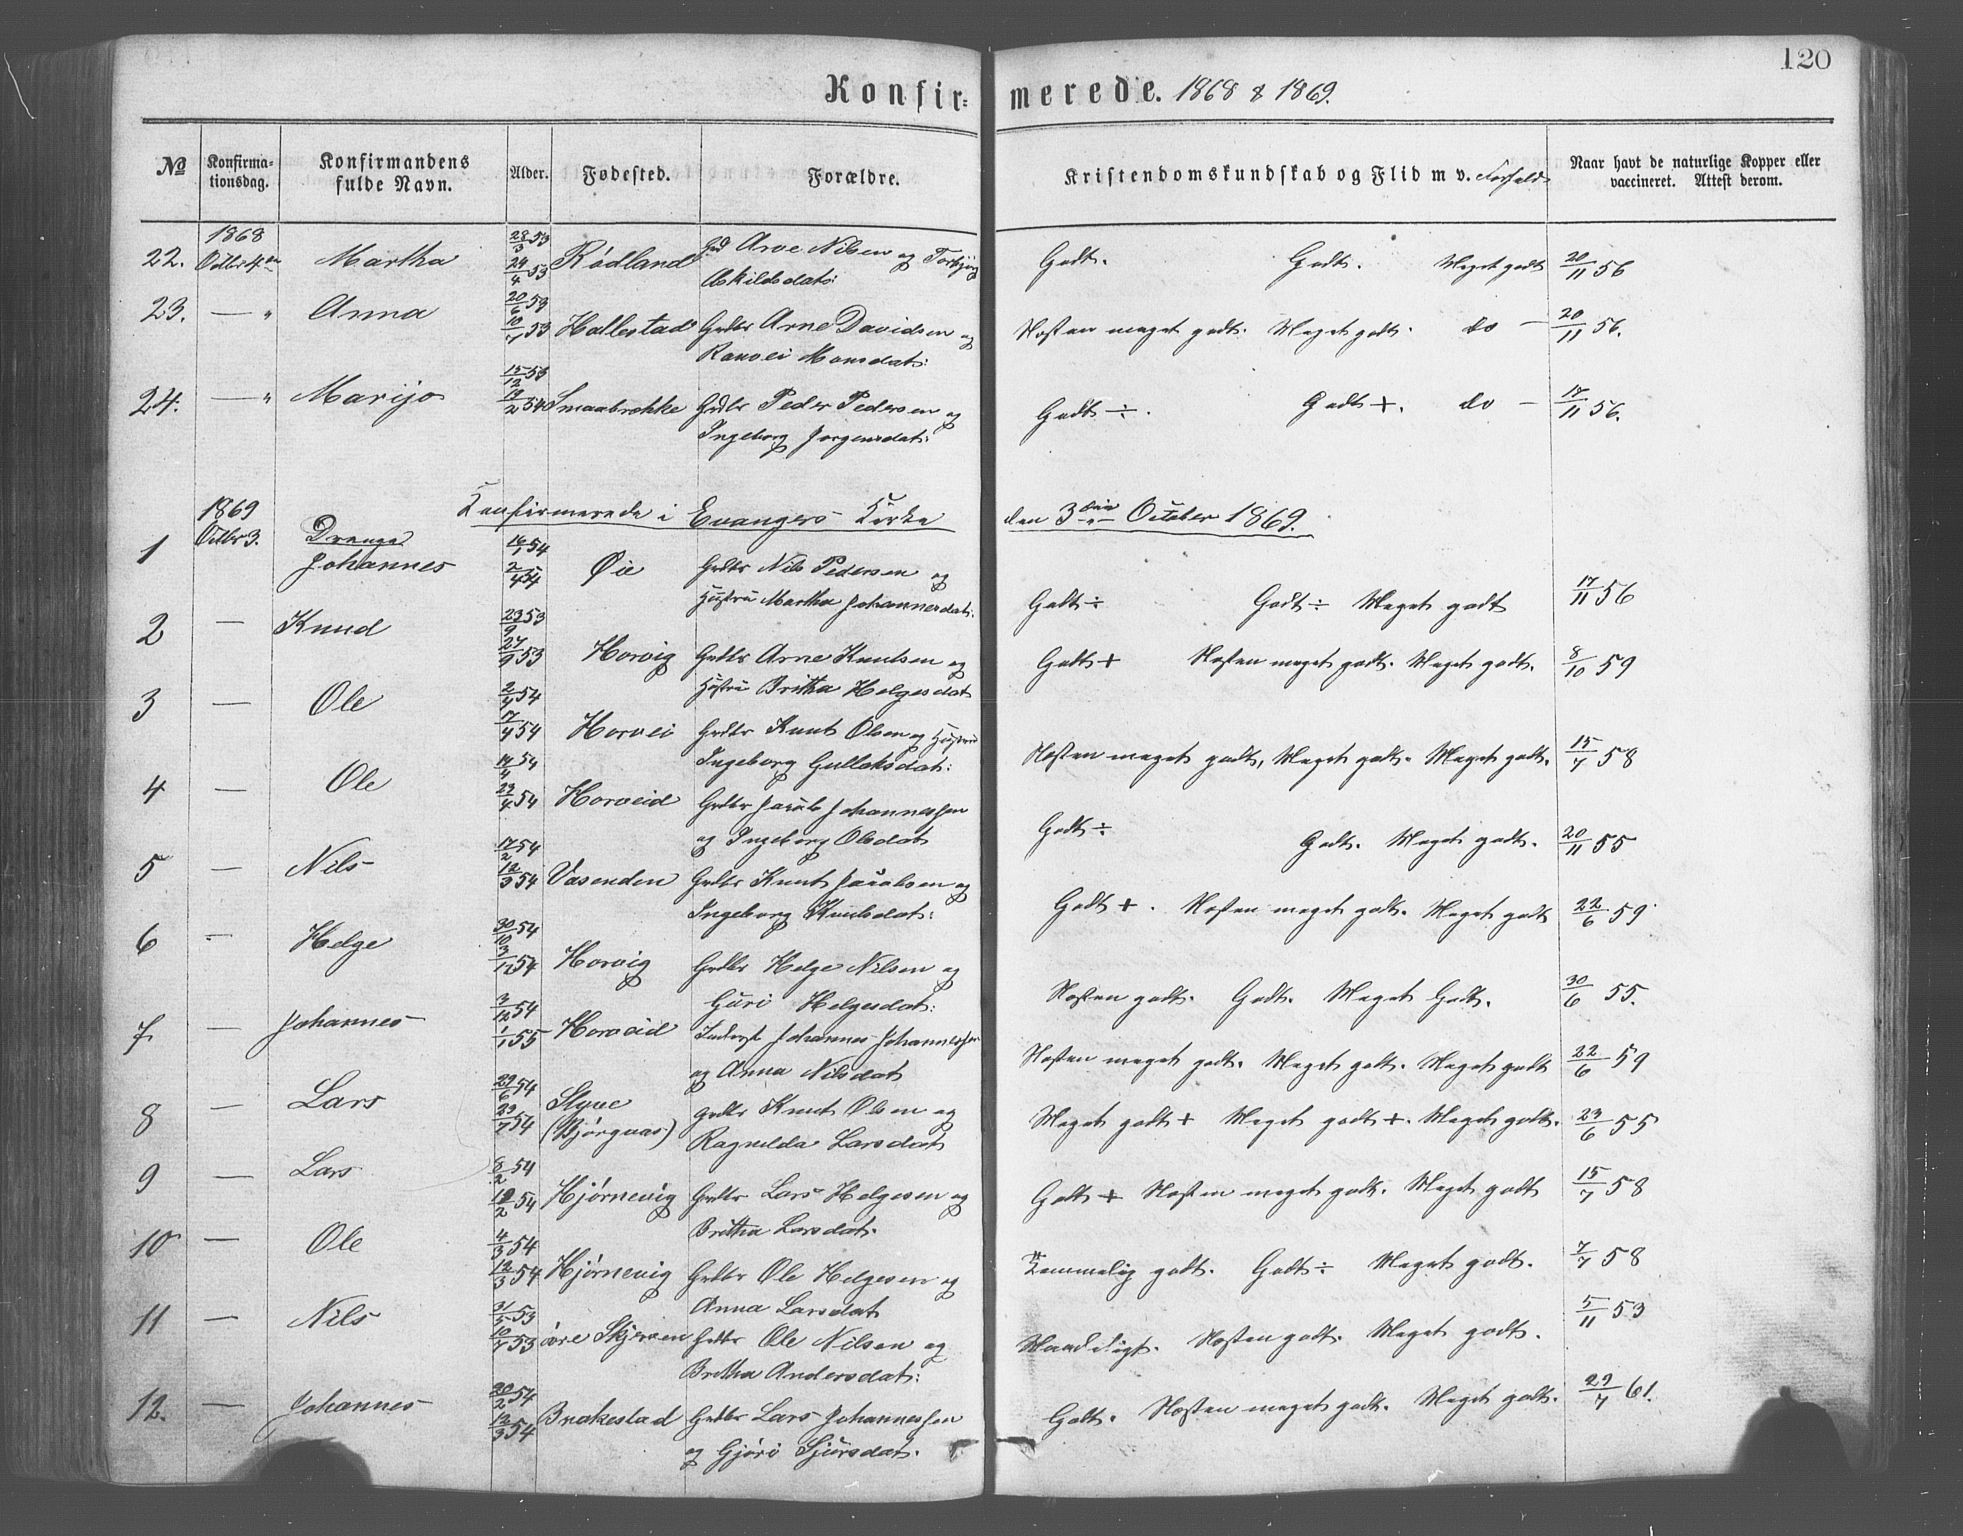 120
Konfir= merede. 1868 & 1869.
No Konfirma=tionsdag. Konfirmandens fulde Navn. Alder. Fødested. Forældre. Kristendomskundskab og Flid m v. Forhold Naar havt de naturlige Kopper eller vaccineret. Attest derom.
1868
22. Octbr 4 Martha 28/3 53 24/4 53 Rödland Arve Nilsen og Torbjørg Askildsdatr: Godt. Godt. Meget godt 20/11 56
23. — " Anna 20/6 53 10/7 53 Hallestad Grdbr Arne Davidsen og Ranvei Monsdat: Næsten meget godt. Meget godt. do — 20/11 56.
24. — " Marijo 15/12 53 12/2 54 Smaabrække Grdbr Peder Pedersen og Ingeborg Jorgensdat: Godt ÷. Godt +. do — 18/11 56.
Konfirmerede i Evangers Kirke den 3die October 1869.
1869
Octbr 3. Drenge
1 Johannes 16/1 54 2/4 54 Øie Grdbr Nils Pedersen og Hustru Martha Johannesdat: Godt ÷ Godt ÷ Meget godt 17/11 56
2 — Knud 23/9 53 27/9 53 Horvig Grdbr Arne Knutsen og Hustru Britha Helgesdat Godt + Næsten meget godt. Meget godt. 8/10 59
3 — Ole 2/4 54 17/4 54 Horvei Grdbr Knut Olsen og Hustru Ingeborg Gullaksdat: Næsten meget godt, Meget godt. Meget godt. 15/7 58
4 — Ole 14/4 54 23/4 54 Horveid Grdbr Jacob Johannessen og Ingeborg Olsdat Godt ÷ Godt. Meget godt. 20/11 55
5 — Nils 17/2 54 12/3 54 Vasenden Grdbr Knut Jacobsen og Ingeborg Knutsdat: Godt +. Næsten meget godt. Meget godt 22/6 59
6 — Helge 30/10 54 3/12 54 Horvig Grdbr Helge Nilsen og Guri Helgesdat: Næsten godt. Godt. Meget Godt. 30/6 55.
7 — Johannes 3/12 54 1/1 55 Horveid Inderst Johannes Johannessen og Anna Nilsdat Næsten meget godt. Meget godt. Meget godt 22/6 59
8 — Lars 29/6 54 23/7 54 Styve (Bjørgaas) grdbr Knut Olsen og Ragnilda Larsdat Meget godt + Meget godt +. Meget godt. 23/6 55
9 — Lars 8/2 54 12/2 54 Hjørnevig Grdbr Lars Helgesen og Britha Larsdat. Godt + Næsten meget godt. Meget godt 15/7 58
10 — Ole 4/3 54 12/3 54 Hjørnevig Grdbr Ole Helgesen og Anna Larsdat Temmelig godt. Godt ÷ Meget godt. 7/7 58
11 — Nils 31/5 53 10/7 53 övre Skjerven Grdbr Ole Nilsen og Britha Andersdat: Maadeligt. Næsten godt. Meget godt. 5/11 53
12. — Johannes 20/2 54 12/3 54 Brækestad Grdbr Lars Johannessen og Gjøri Sjursdat. Godt. Næsten meget godt. Meget godt. 29/7 61.